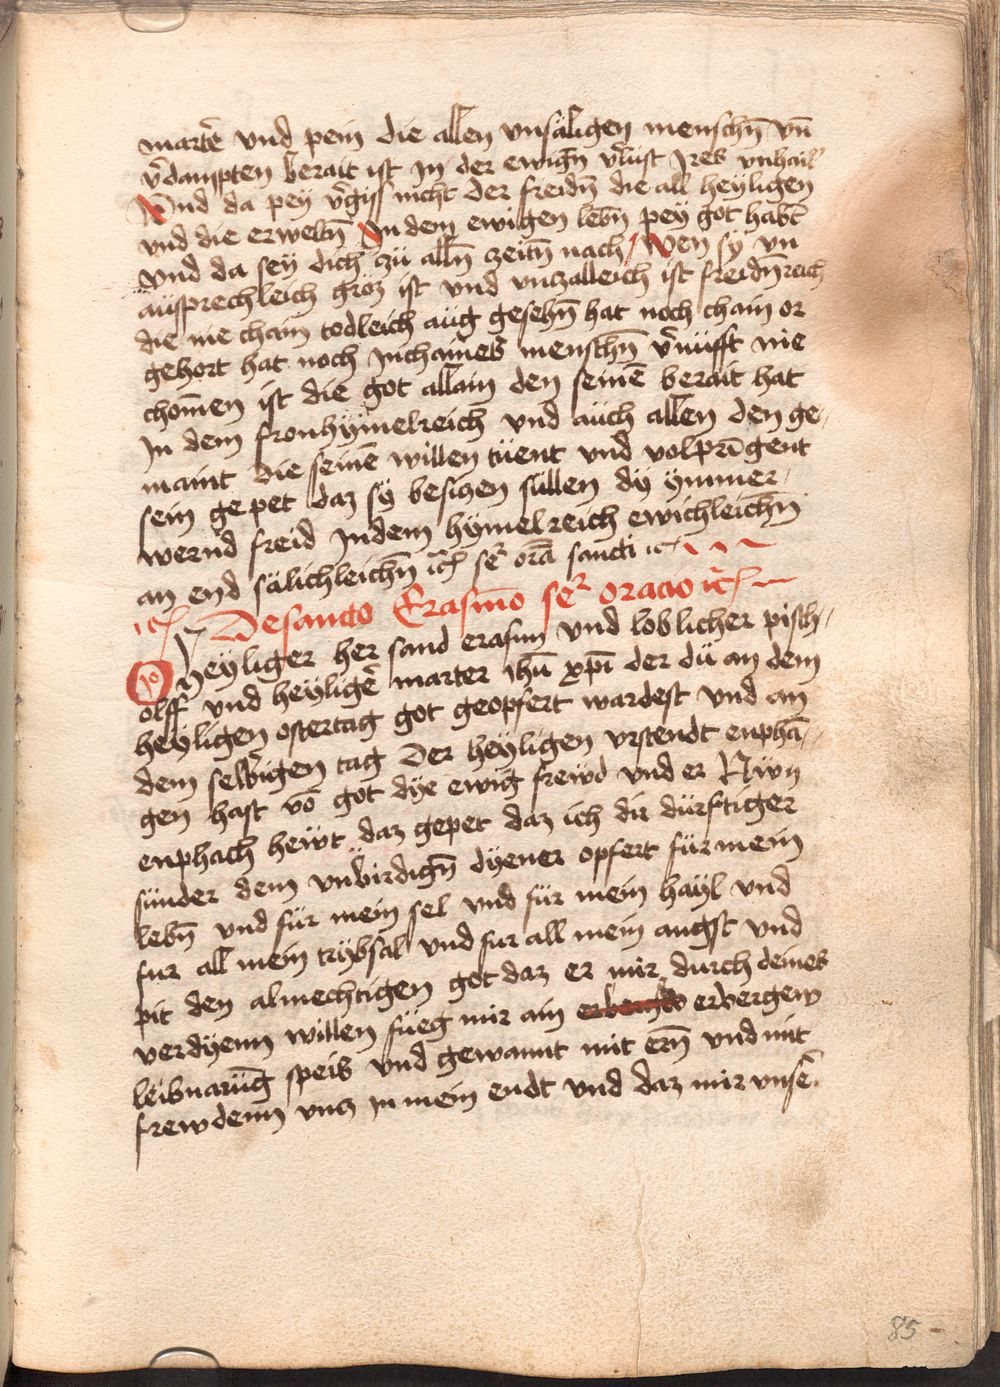 martē vnd pein die allen vnsäligen menschn̄ vn̄
v̄dampten berait ist In der ewign̄ v̄lust Ires vnhail
Vnd da pey v̄giss nicht der freidn̄ die all heyligen
vnd die erweltn̄ In dem ewigen lebn̄ pey got habt
Vnd da sey dich zü alln̄ zeitn̄ nach / Wen sy vn
aüsprechleich gröz ist vnd vnczalleich ist freidn̄reich
die nie chain todleich aüg gesehn̄ hat noch chain or
gehort hat noch Inchaines menschn̄ v̄nüfft nie
chom̄en ist die got allain den seinē berait hat
In dem fronhÿmelreich vnd aüch allen den ge⸗
maint die seinē willen tüent vnd volprīgent
sein gepet daz sÿ besiczen süllen dÿ ymmer⸗
wernd freid Indem hÿmelreich ewichleichn̄
an end sälichleichn̄ ⁊c̄ orā sancti ⁊c̄
⁊c̄ De sancto Erasmo oracio ⁊c̄
O Heyliger her sand erasm vnd loblicher pisch⸗
olff vnd heyligē marter ihū xpī der dü an dem
heyligen ostertag got geopfert wardest vnd an
dem selbigen tag Der heyligen vrstendt enphā⸗
gen hast vō got dÿe ewig frewd vnd er Nẅn
enphach heẅt daz gepet daz ich dir dürftiger
sünder dem vnbirdign̄ dÿener opfert für mein
lebn̄ vnd für mein sel vnd für mein haÿl vnd
fur all mein trübsal vnd fur all mein angst vnd
pit den almechtigen got daz er mir durch deines
verdÿenn willen füeg mir ain erbergew
leibnarüng speis vnd gewannt mit ern̄ vnd mit
frewdenn vncz In mein endt vnd daz mir vnsē
85